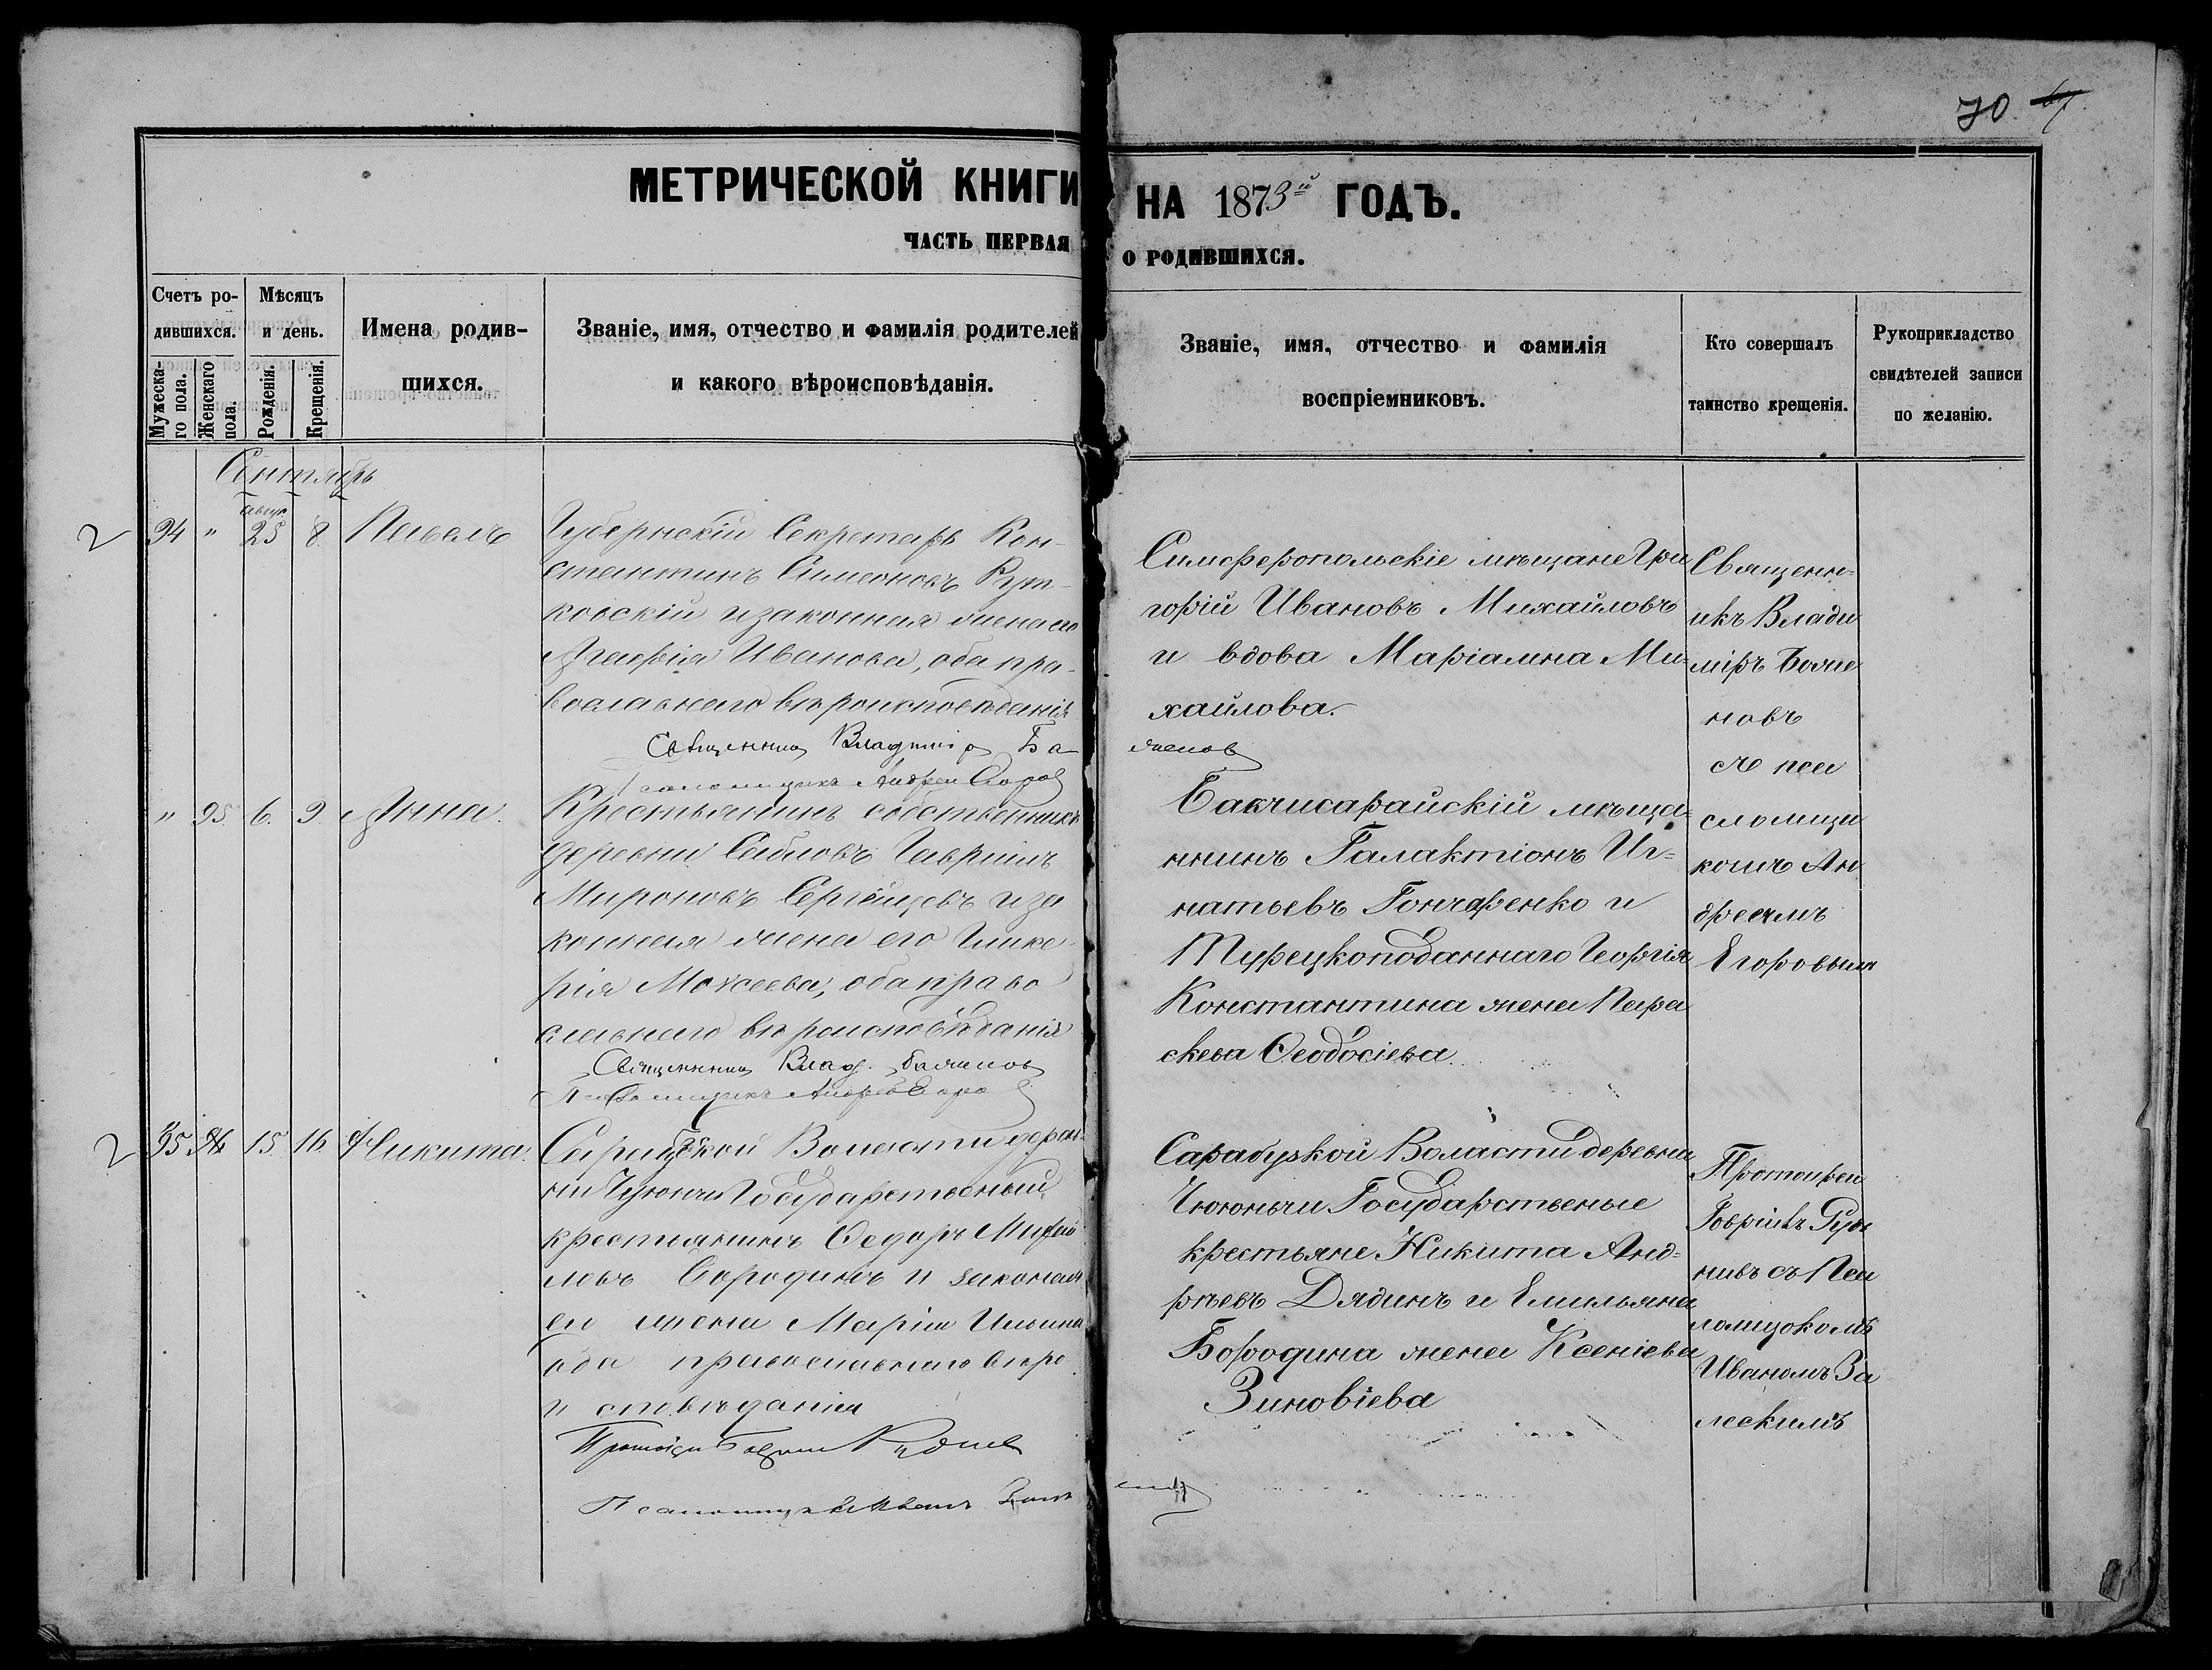 70. 67.
МЕТРИЧЕСКОЙ КНИГИ НА 1873й ГОДЪ.
ЧАСТЬ ПЕРВАЯ О РОДИВШИХСЯ.
Счетъ ро-
дившихся.
Мужеска-
го пола.
Женскаго
пола.
Мѣсяцъ
и день.
Рожденія.
Крещенія.
Имена родив-
шихся.
Званіе, имя, отчество и фамилія родителей
и какого вѣроисповѣданія.
Званіе, имя, отчество и фамилія
воспріемниковъ.
Кто совершалъ
таинство крещенія.
Рукоприкладство
свидѣтелей записи
по желанію.
Сентябрь
2 94 " авгус. 25 8. Павелъ
Губернскій Секретарь Кон-
стантинъ Симеоновъ Рут-
ковскій и законная жена его
Агафія Иванова, оба пра-
вославнаго вѣроисповѣданія
Священникъ Владиміръ Ба-
женовъ
Псаломщикъ Андрей Егоров
Симферопольскіе мѣщане Гри
горій Ивановъ Михайловъ
и вдова Маріамна Ми-
хайлова.
Священн-
икъ Влади
міръ Баже
новъ
съ пса
ломщи
комъ Ан
дреемъ
Егоровымъ
" 95. 6. 9. Анна.
Крестьянинъ собственникъ
деревни Сабловъ Гавріилъ
Мироновъ и за
конная жена его Глике
рія Моѵсеева, оба право
славнаго вѣроисповѣданія
Священникъ Влад. Баженовъ
Псаломщикъ Андрей Егоров
Бакчисарайскій мѣща-
нинъ Галактіонъ Иг-
натьевъ Гончаренко и
Турецкоподаннаго Георгія
Константина жена Пара
скева Ѳеодосіева.
2 95 15. 16. Никита.
Сарабузкой Воласти дерев-
ни Чуюнчи Государственый
крестьянинъ Ѳедоръ Михай
ловъ Бородинъ и законая
его жена Марія Ильина
оба православнаго вѣро
исповѣданія
Протоіерей Гавріилъ Руднев
Псаломщикъ Иванъ Залескій
Сарабузкой Воласти деревни
Чуюнчи Государственые
крестьяне Никита Анд-
рѣевъ Дядинъ и Емильяна
Бородина жена Ксеніева
Зиновіева
Протоирей
Гавріилъ Руд
невъ съ Пса
ломщокомъ
Иваномъ За
лескимъ